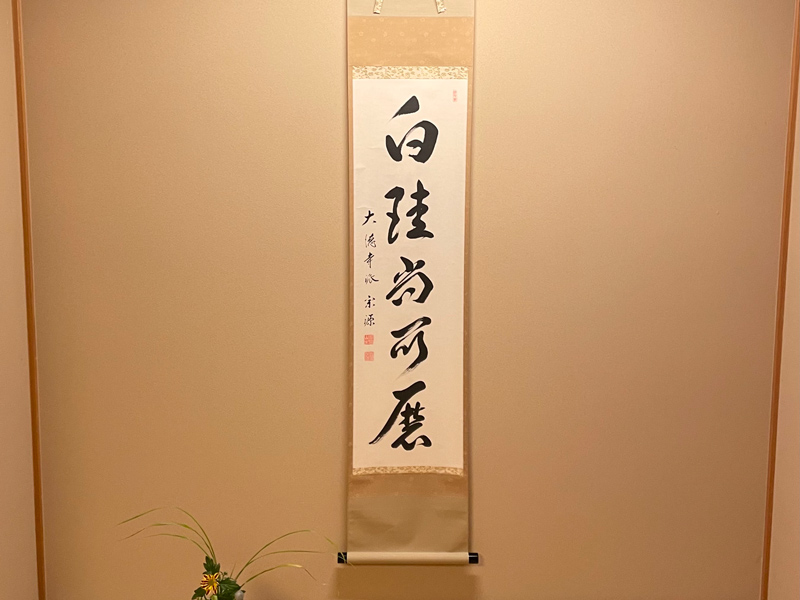 白珪尚可磨
大徳寺派 宗源